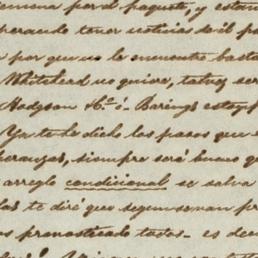 semana por el paquete, y estan
perando tener noticias de él p
o por que no le encontre basta
Whitehead no quiere, talvez ser
Hodgson H.º é Barings estoy p
Ya te he dicho los pasos que
peranzas, siempre será bueno q
arreglo condicional se salva
las te diré que segun suman pr
pronosticado todos - es dec